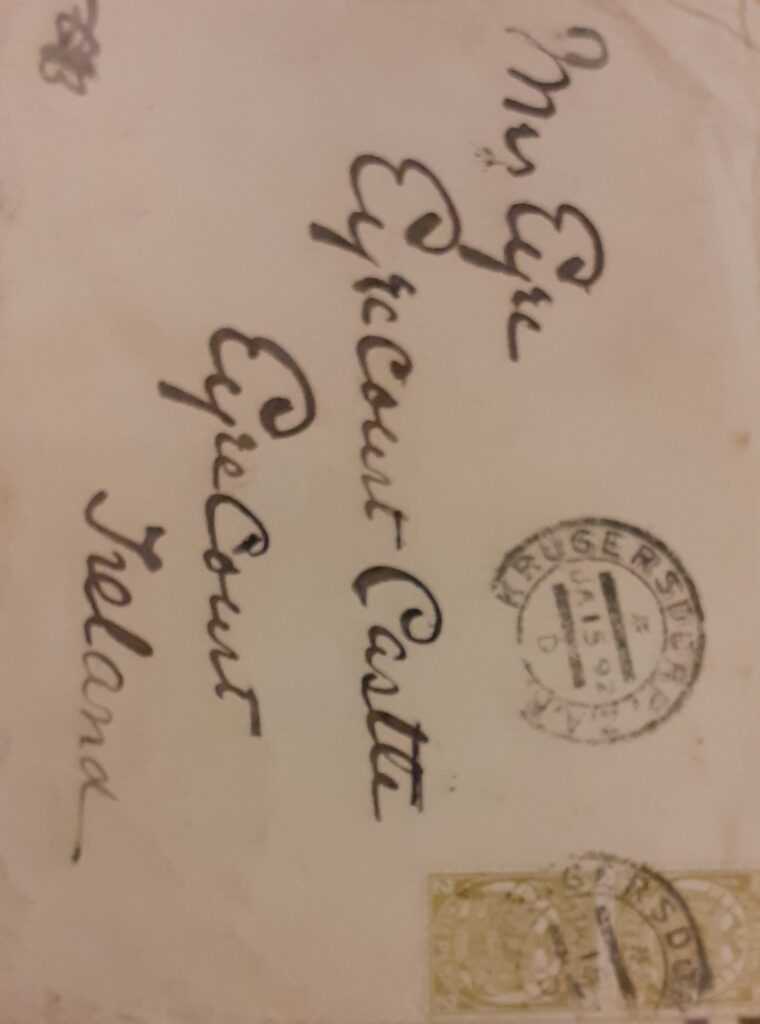 Mrs Eyre
EyreCourt Castle
EyreCourt
Ireland
KRUGERSDORP
JA 15 92
D